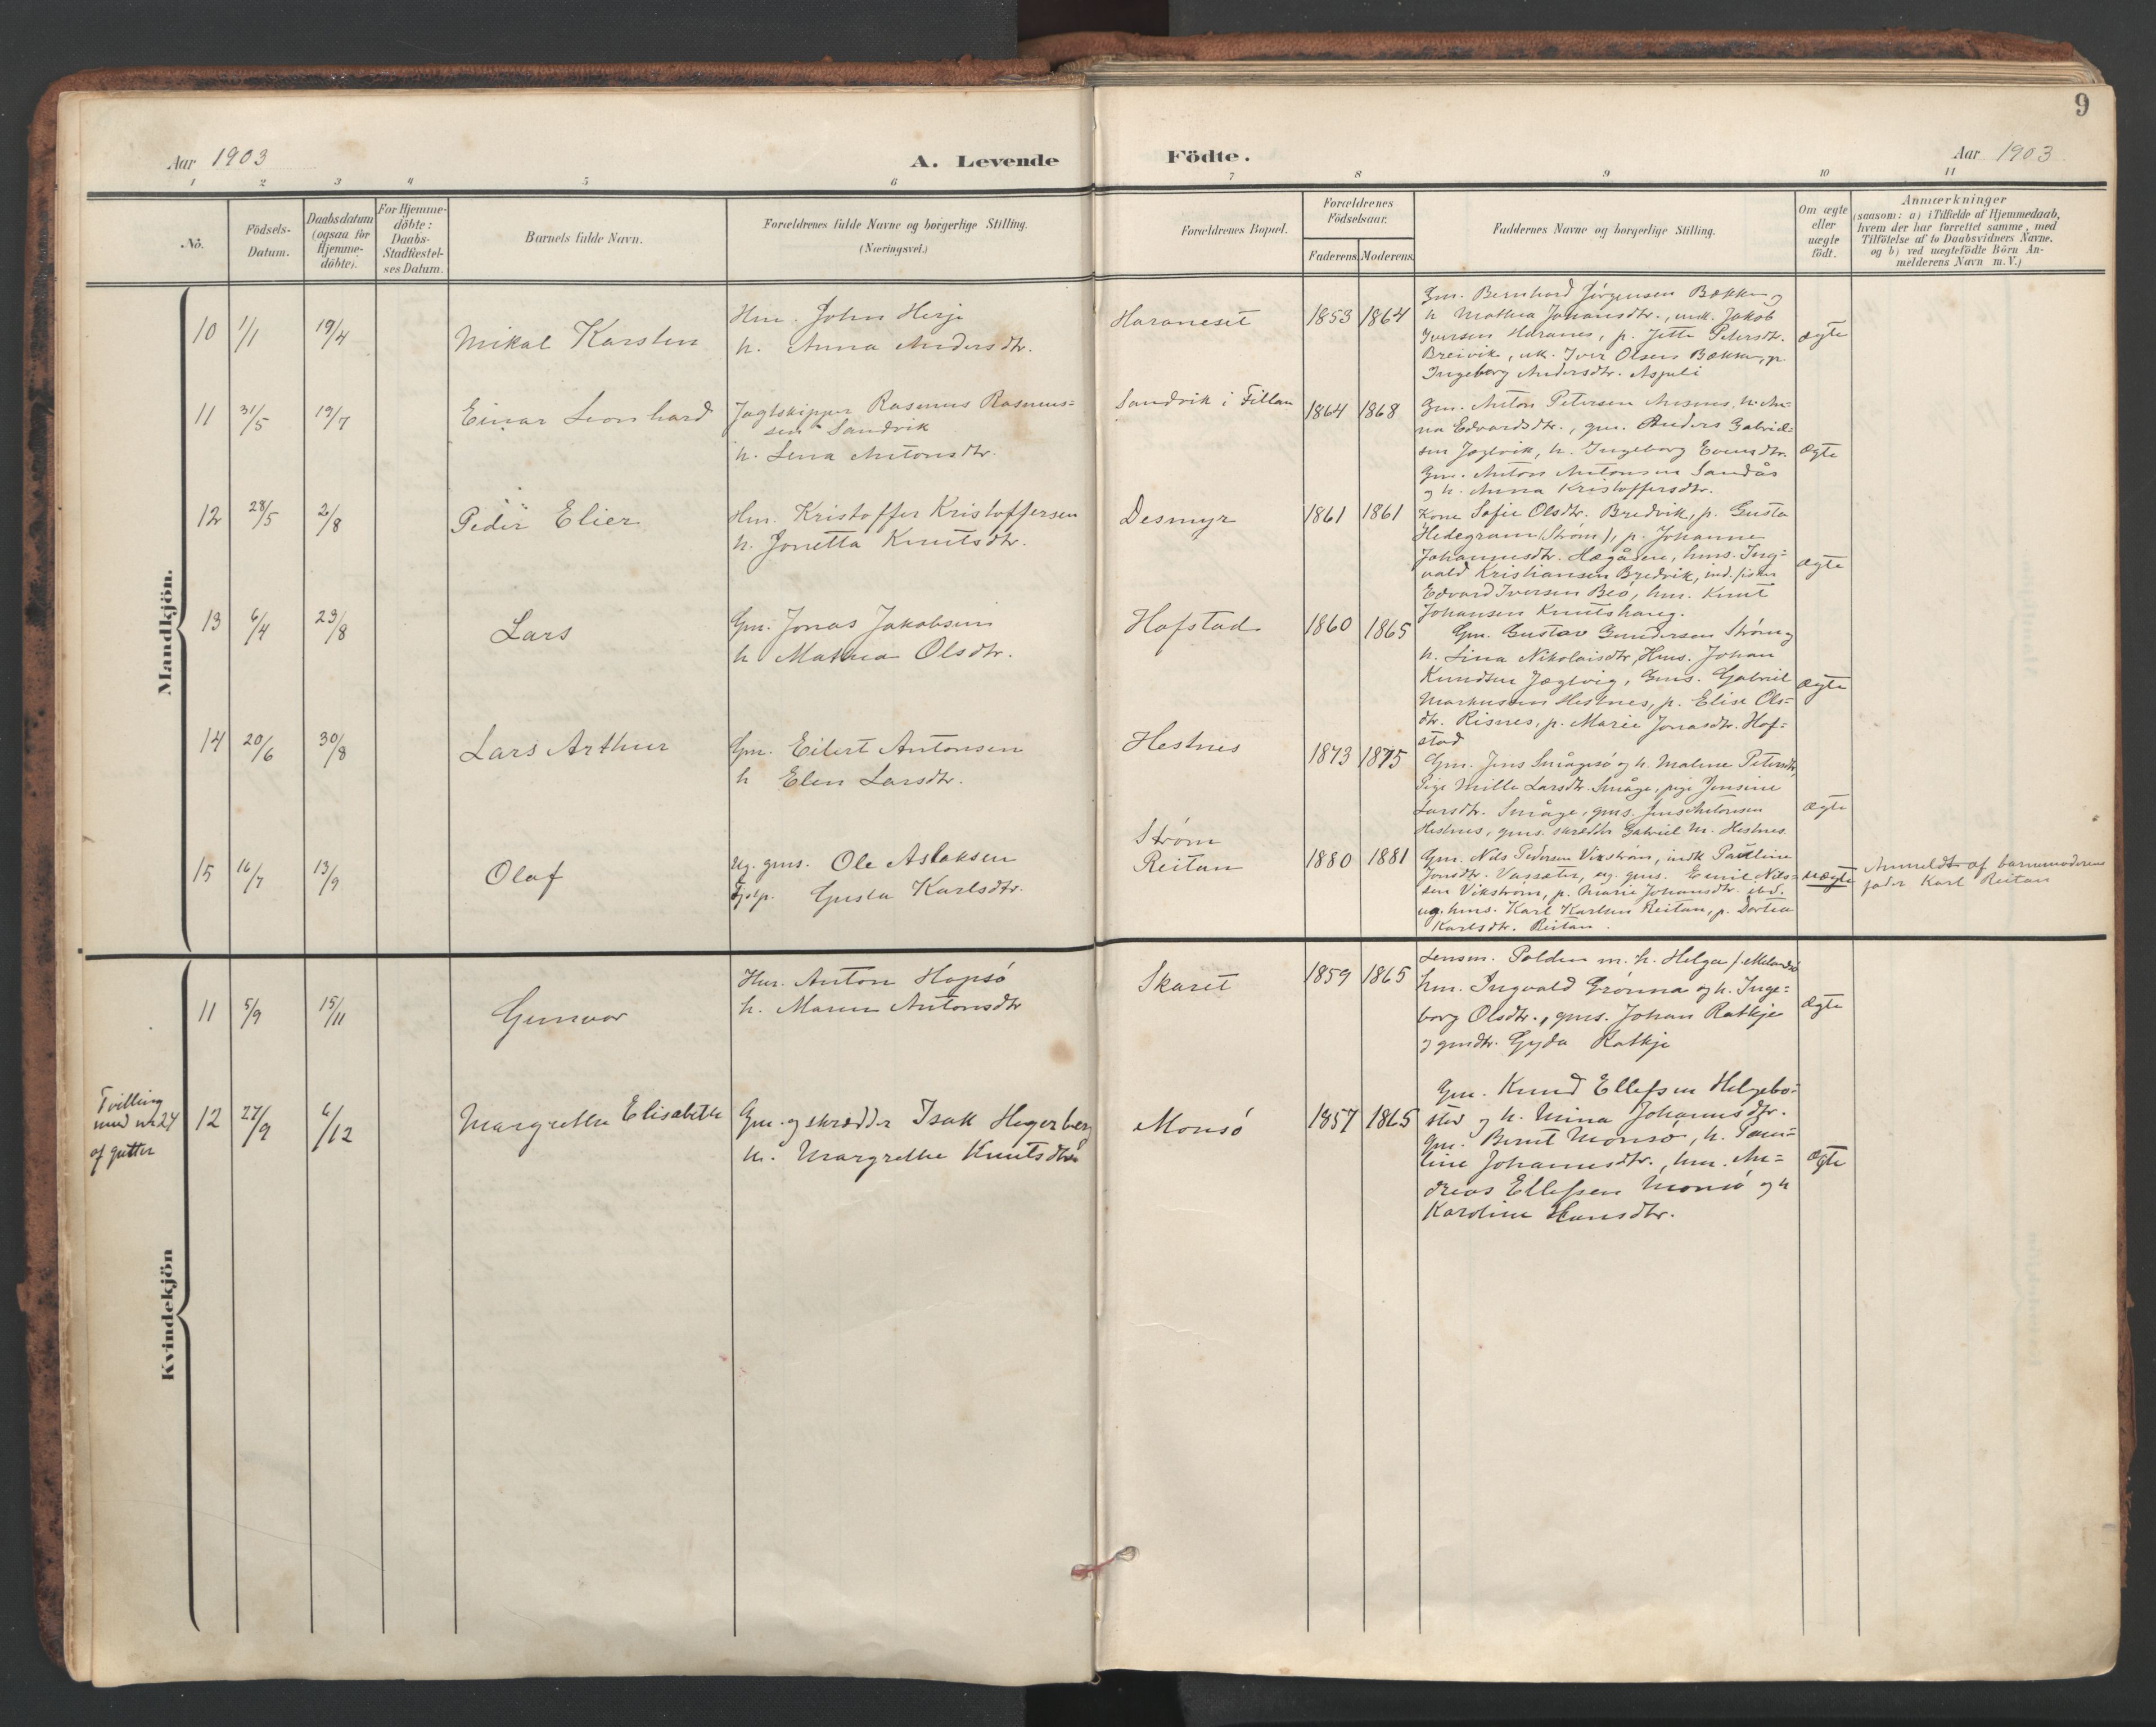 9
Aar 1903
A. Levende
Födte.
Aar 1903
1 2 3 4 5 6 7 8 9 10 11
No.
Födsels-
Datum.
Daabsdatum
(ogsaa for
Hjemme-
döbte).
For Hjemme-
döbte:
Daabs-
Stadfæstel-
ses Datum.
Barnets fulde Navn.
Forældrenes fulde Navne og borgerlige Stilling.
(Næringsvei.)
Forældrenes Bopæl.
Forældrenes
Födselsaar.
Faderens.
Moderens.
Faddernes Navne og borgerlige Stilling.
Om ægte
eller
uægte
födt.
Anmærkninger
(saasom: a) i Tilfælde af Hjemmedaab,
hvem der har forrettet samme, med
Tilföielse af to Daabsvidners Navne,
og b) ved uægtefödte Börn An-
melderens Navn m. V.)
Mandkjön.
10
1/1
19/4
Mikal Karsten
Hm. John Hirje
h. Anna Andersdtr.
Haraneset
1853
1864
Gm. Bernhard Jørgensen Bækken og
h Mathea Johansdtr., indk. Jakob
Iversen Haranes, p. Jette Petersdtr.
Breivik, uk. Iver Olsen Bækken, p.
Ingeborg Andersdtr. Aspeli
ægte
11
31/5
19/7
Einar Leonhard
Jagtskipper Rasmus Rasmus=
sen Sandvik
h. Lina Antonsdtr.
Sandvik i Fillan
1864
1868
Gm. Anton Petersen h. An=
na Edvardsdtr., gm. Anders Gabriel=
sen Jægtvik, h. Ingeborg Evensdtr.
Gm. Anton Antonsen Sandås
og h. Anna Kristoffersdtr.
ægte
12
28/5
2/8
Peder Elier
Hm. Kristoffer Kristoffersen
h. Jonetta Knutsdtr.
Desmyr
1861
1861
Kone Sofie Olsdtr. Bredvik, p. Gusta
Hedegram (Strøm), p. Johanne
Johannesdtr. Hægåsen, hms. Ing=
vald Kristiansen Bredvik, ind. fisker
Edvard Iversen Beö, hm. Knut
Johansen Knutshaug.
ægte
13
6/4
23/8
Lars
Gm. Jonas Jakobsen
h Mathea Olsdtr.
Hofstad
1860
1865
Gm. Gustav Gundersen Strøm og
h. Lina Nikolaisdtr, Hms. Johan
Knudsen Jægtvig, Gms. Gabriel
Markussen Hestnes, p. Elise Ols=
dtr. Risnes, p. Marie Jonasdtr. Hof=
stad
ægte
14
20/6
30/8
Lars Arthur
Gm. Eilert Antonsen
h Elen Larsdtr.
Hestnes
1873
1875
Gm. Jens Småges ø og h. Maline Petersdtr,
Pige Mille Larsdtr. Småge, pige Jensine
Larsdtr. Småge, gms. Jens Antonsen
Hestnes, gms. skrædder Gabriel M. Hestnes.
ægte
15
16/7
13/9
Olaf
Ug. gms. Ole Aslaksen
Tjp. Gusta Karlsdtr.
Strøm
Reitan
1880
1881
Gm. Nils Pedersen Vikstrøm, indk Pauline
Jonsdtr. Vassæter, ug. gms. Emil Nils=
sen Vikstrøm, p. Marie Johansdtr. ibd.
ug. hms. Karl Karlsen Reitan, p. Dortea
Karlsdtr. Reitan.
uægte
Anmeldt af barnemoderens
fader Karl Reitan
Kvindekjön
11
5/9
15/11
Gunvor
Hm. Anton Hopsø
h. Maren Antonsdtr
Skaret
1859
1865
Lensm. Polden m. h. Helga f. Melandsø
hm. Ingvald Grønna og h. Inge=
borg Olsdtr., gms. Johan Ratkje
og gmdtr. Gyda Ratkje
ægte
Tvilling
med nr. 24
af gutter
12
27/9
6/12
Margrethe Elisabeth
Gm. og skrædder Isak Hegerberg
h. Margrethe Knutsdtr
Monsø
1857
1865
Gm. Knud Ellefsen Helgebo=
stad og h. Mina Johannesdtr.
Gm. Bernt Monsø, h. Pau=
line Johannesdtr., hm. An=
dreas Ellefsen Monsø og h
Karoline Hansdtr.
ægte